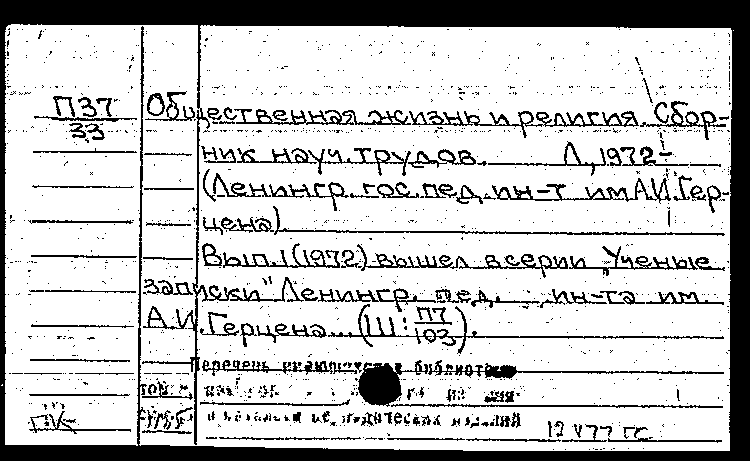 П37
33
Общественная жизнь и религия. Сбор-
ник науч. трудов. Л., 1972-
(Ленингр. гос. пед. ин-т им А.И. Гер-
цена).
Вып. 1 (1972) вышел в серии „Ученые
записки" Ленингр. пед. ин-та им.
А.И. Герцена... (Ш: П7
103).
Перечень
изданий
12 V 77 ГС